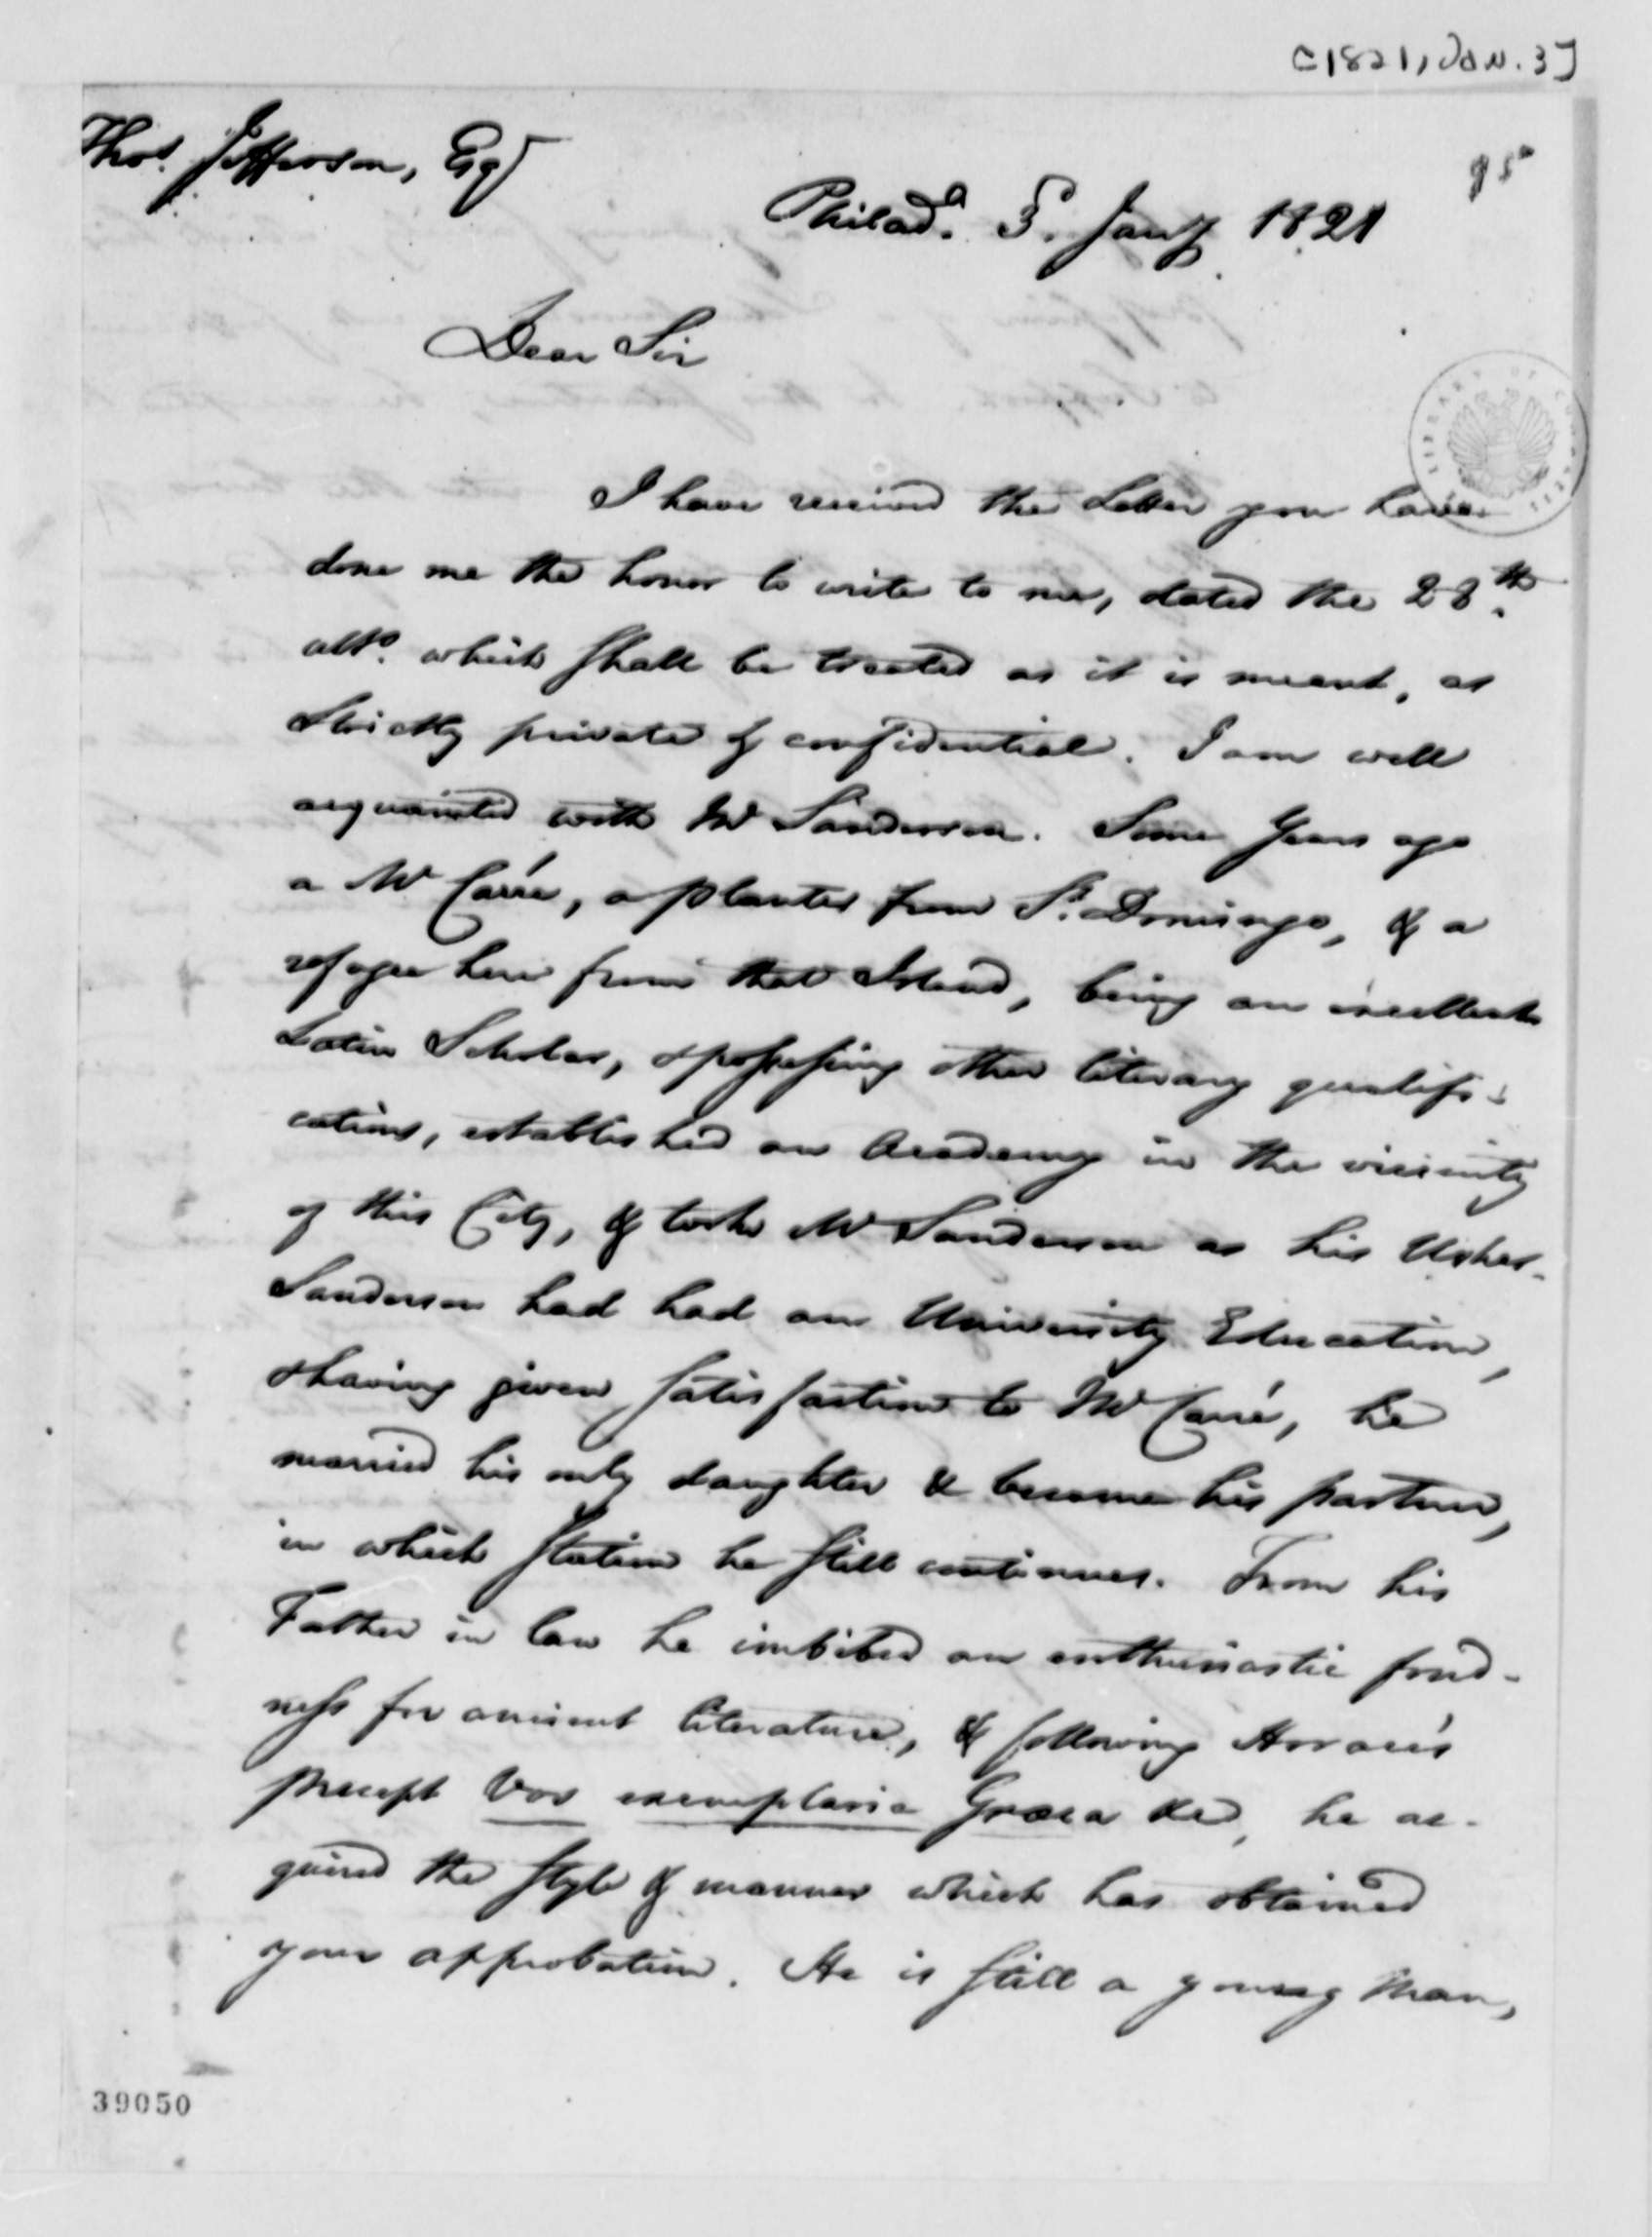 [1821, Jan. 3]
Thos. Jefferson, Esqr
Philada. 3. Jany 1821
Dear Sir
I have received the Letter you have
done me the honor to write to me, dated the 28th.
ulto. which shall be treated as it is meant, as
strictly private & confidential. I am well
acquainted with Mr Sanderson. Some Years ago
a Mr Carré, a planter from St. Domingo, & a
refugee here from that Island, being an excellent
Latin Scholar, & possessing other literary qualifi-
cations, established an Academy in the vicinity
of this City, & took Mr Sanderson as his Usher.
Sanderson had had an University Education,
& having given satisfaction to Mr Carré, he
married his only daughter & became his partner,
in which Station he still continues. From his
Father in law he imbibed an enthusiastic fond-
ness for ancient literature, & following Horace's
precept Vos exemplaria Græca &c, he ac-
quired the style & manner which has obtained
your approbation. He is still a young Man,
39050
LIBRARY OF CONGRESS